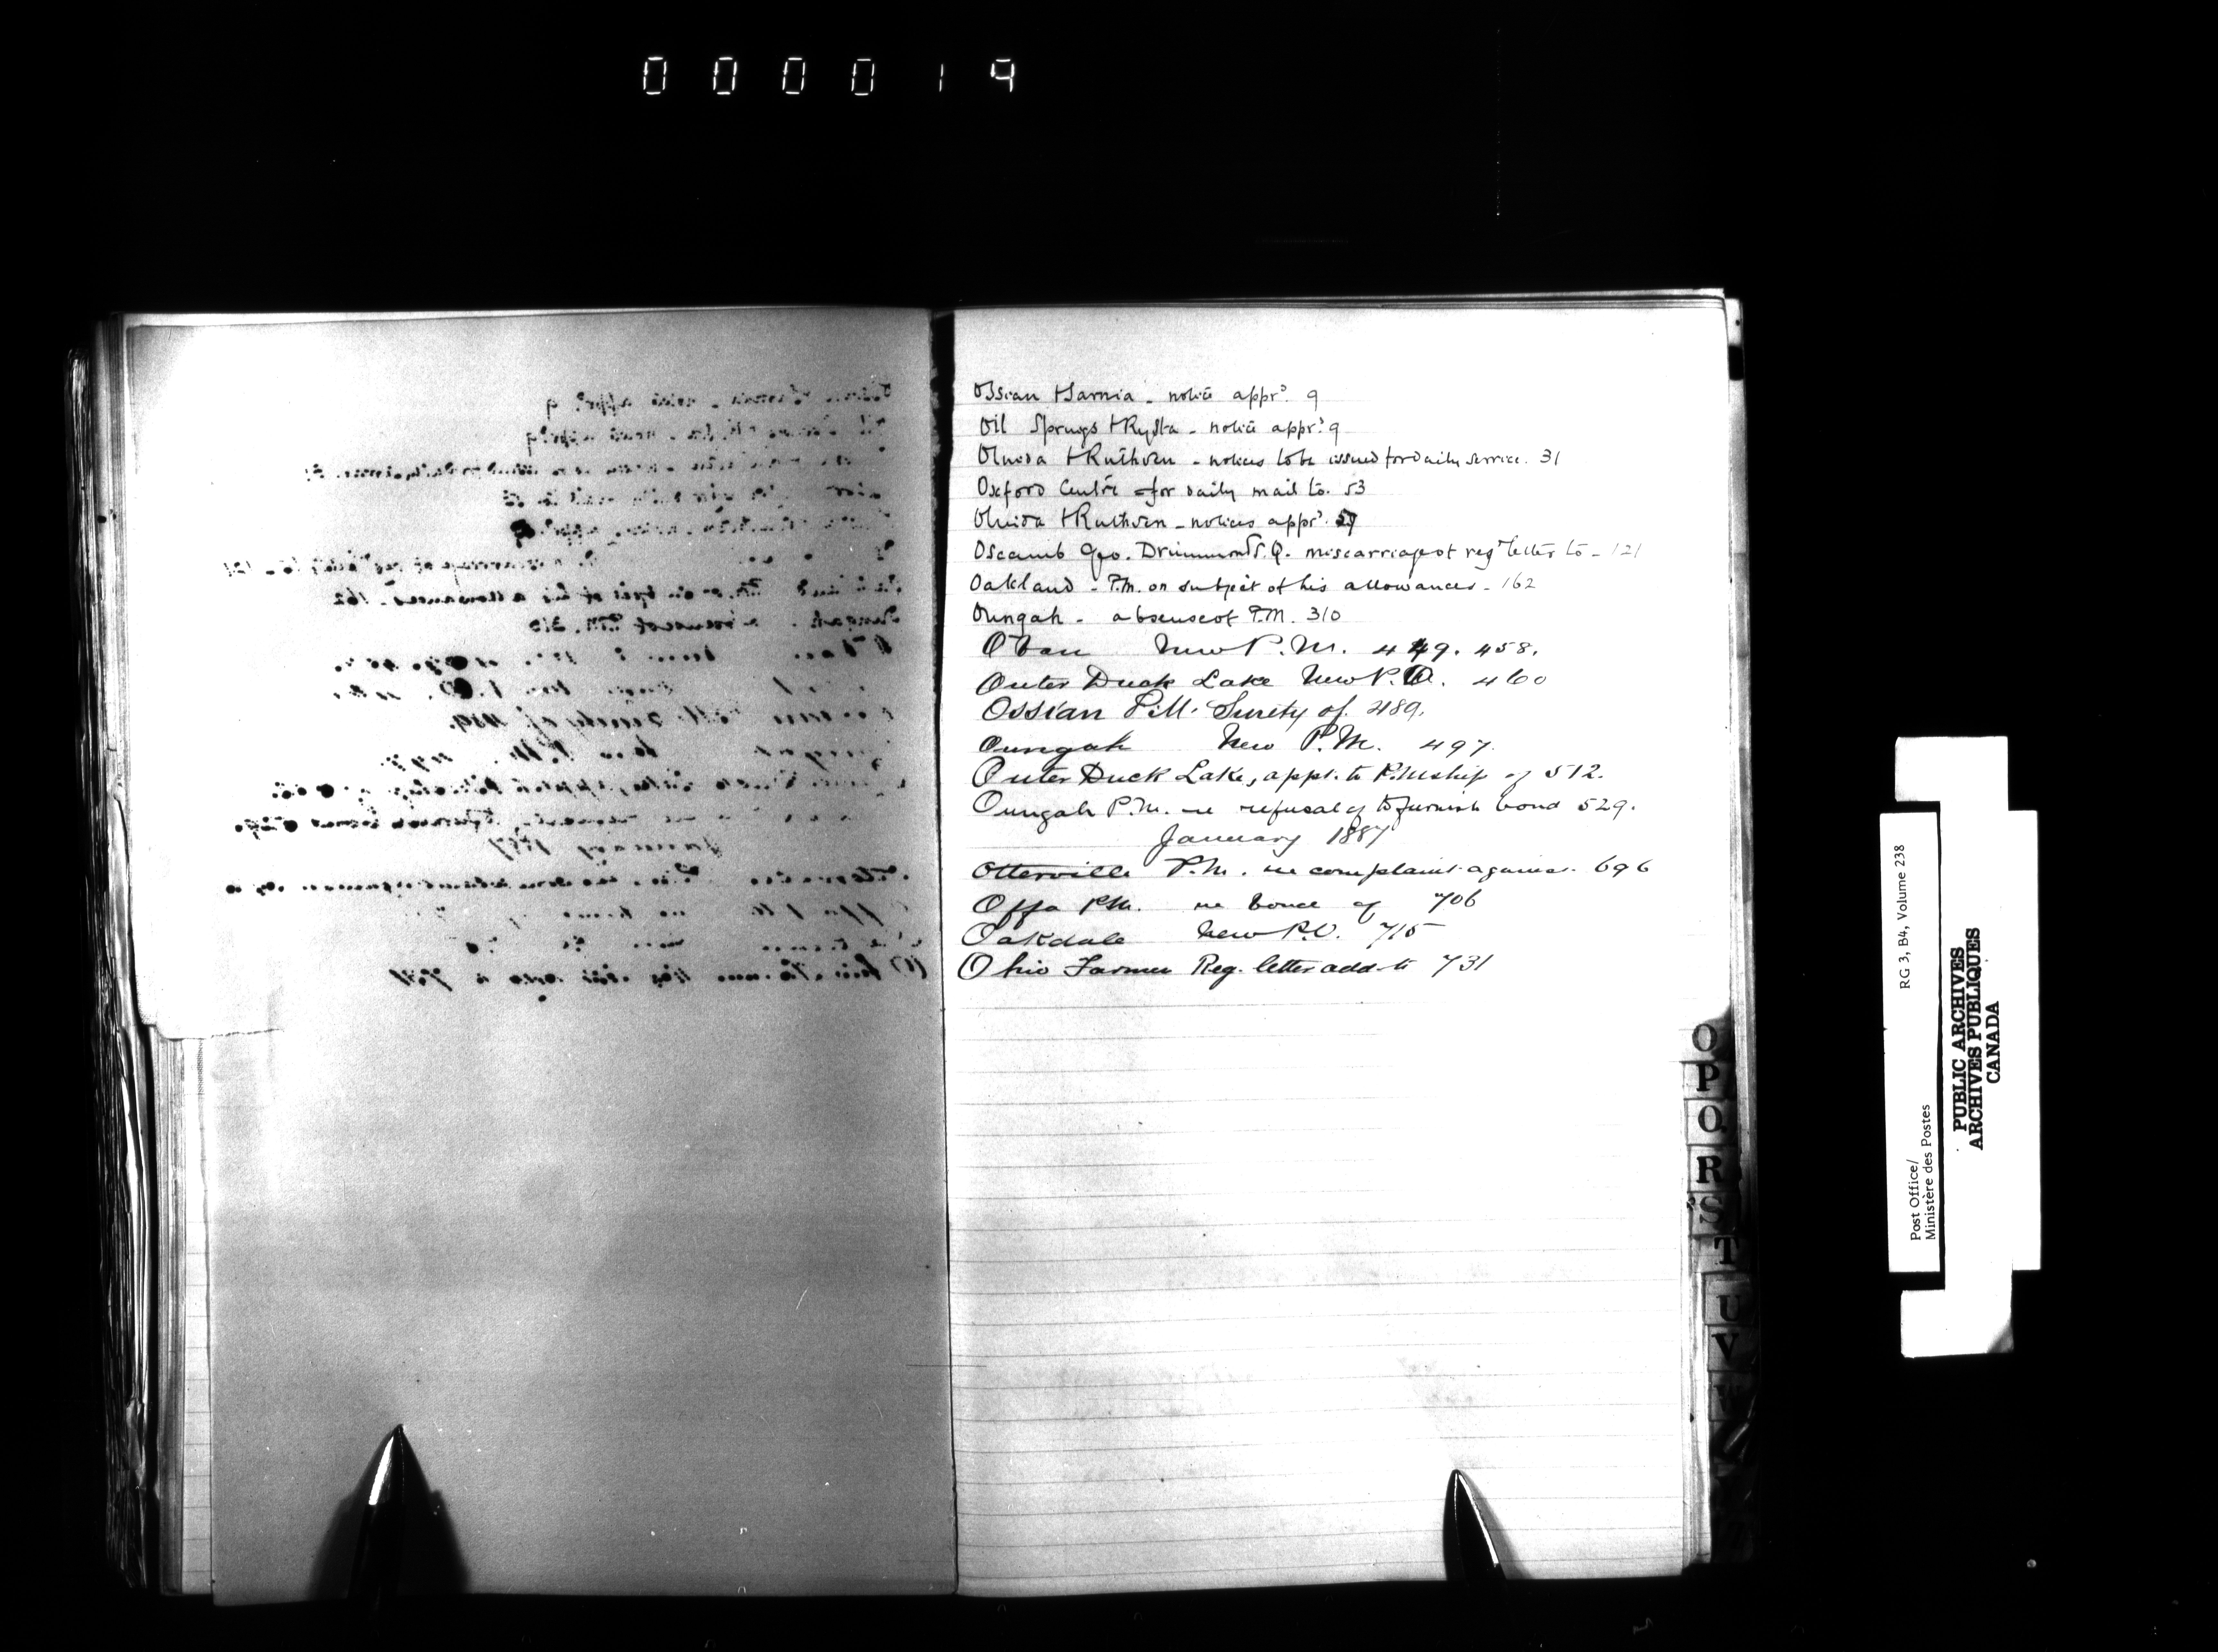 000019
Ossian & Sarnia - notice appr? 9
Oil Springs & - notice appr? 9
& Ruthven - notices to be issued for daily service. 31
Oxford Centre for daily mail to. 53
& Ruthven - notices appr?
Geo. Drummond P.Q. miscarriage of reg letter to - 121
Oakland - P.M. on subject of his allowances - 162
Oungah - absence of P.M. 310
Oban New P.M. 449. 458.
Outer Duck Lake New P.O. 460
Ossian P.M. Surety of. 489.
Oungah New P.M. 497.
Outer Duck Lake, appt. to P.Mship of 512.
Oungah P.M. re refusal of to furnish bond 529.
January 1887
Otterville P.M. re complaint against. 696
Offa P.M. re bond of 706
Oakdale New P.O. 715
Ohio Farmer Reg. letter add. to 731
O
P
Q
R
S
T
U
V
W
Post Office/
Ministère des Postes
RG 3, B4, Volume 238
PUBLIC ARCHIVES
ARCHIVES PUBLIQUES
CANADA